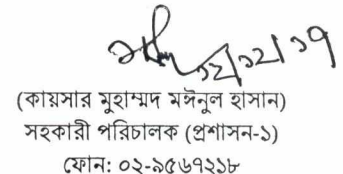 ১২/১২/১৭
(কায়সার মুহাম্মদ মঈনুল হাসান)
সহকারী পরিচালক (প্রশাসন-১)
ফোন: ০২-৯৫৬৭২১৮